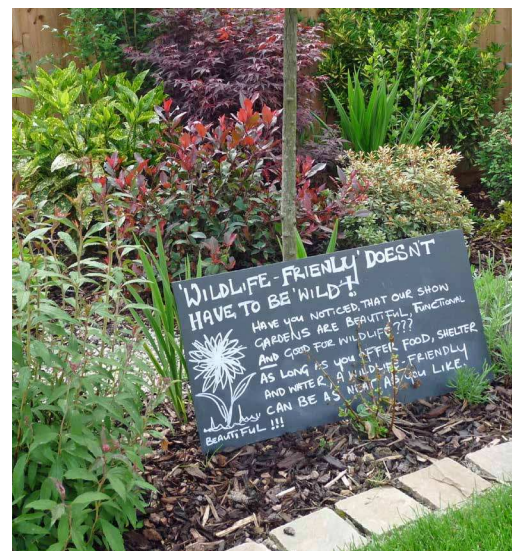 'WILDLIFE-FRIENLY' DOESN'T
HAVE TO BE 'WILD'!!
HAVE YOU NOTICED, THAT OUR SHOW
GARDENS ARE BEAUTIFUL, FUNCTIONAL
AND GOOD FOR WILDLIFE???
AS LONG AS YOU OFFER FOOD, SHELTER
AND WATER, A WILDLIFE-FRIENDLY
CAN BE AS NEAT AS YOU LIKE.
BEAUTIFUL!!!